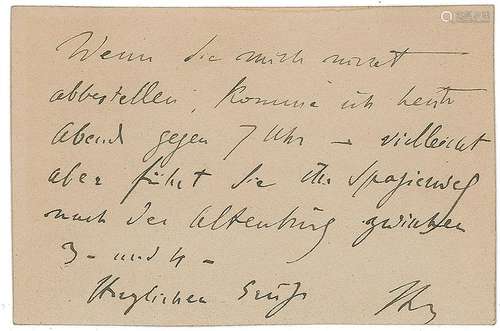 Wenn Sie mich nicht
abbestellen, komme ich heute
Abend gegen 7 Uhr – vielleicht
aber führt Sie Ihr Spazierweg
nach der Altenburg zwischen
3- und 4-
Herzlichen Gruß